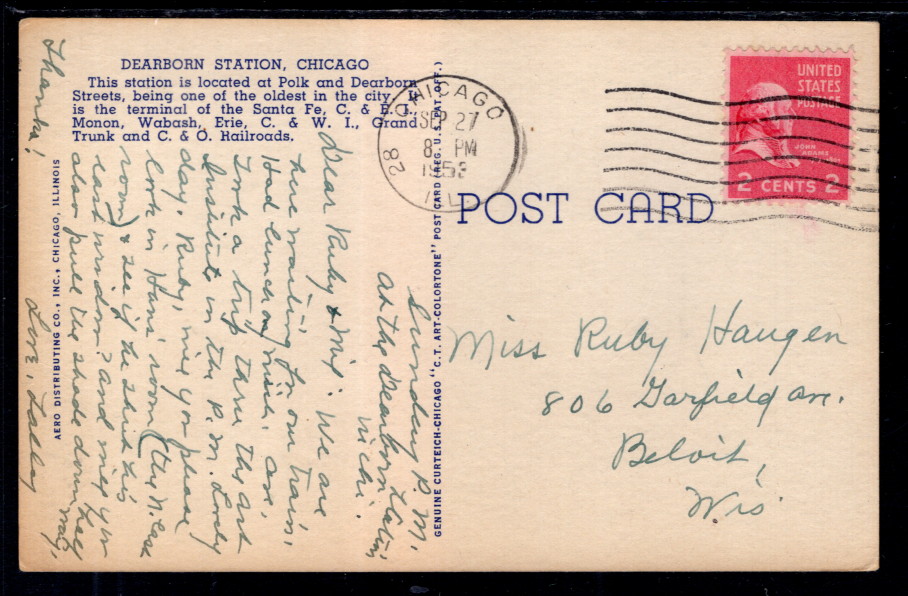 DEARBORN STATION, CHICAGO
This station is located at Polk and Dearborn
Streets, being one of the oldest in the city. It
is the terminal of the Santa Fe, C. & E.I.,
Monon, Wabash, Erie, C. & W. I., Grand
Trunk and C. & O. Railroads.
AERO DISTRIBUTING CO., INC., CHICAGO, ILLINOIS
GENUINE CURTEICH-CHICAGO "C.T. ART-COLORTONE" POST CARD (REG. U.S. PAT. OFF.)
CHICAGO
28
SEP 27
PM
ILL.
UNITED
STATES
POSTAGE
JOHN
ADAMS
2 CENTS 2
POST CARD
Miss Ruby Haugen
806 Garfield ave.
Beloit,
Wis
Sunday P.M.
At the Dearborn Station
in Chi.
Dear Ruby & : We are
here waiting for our train.
Had lunch on
Took a trip thru the art
Institute in the P.M. Lovely
day. Ruby, will you please
look in Hans' room (the N. East
room) & see if he shut his
east window? and will you
also pull the shade down half way,
Thanks!
Love,